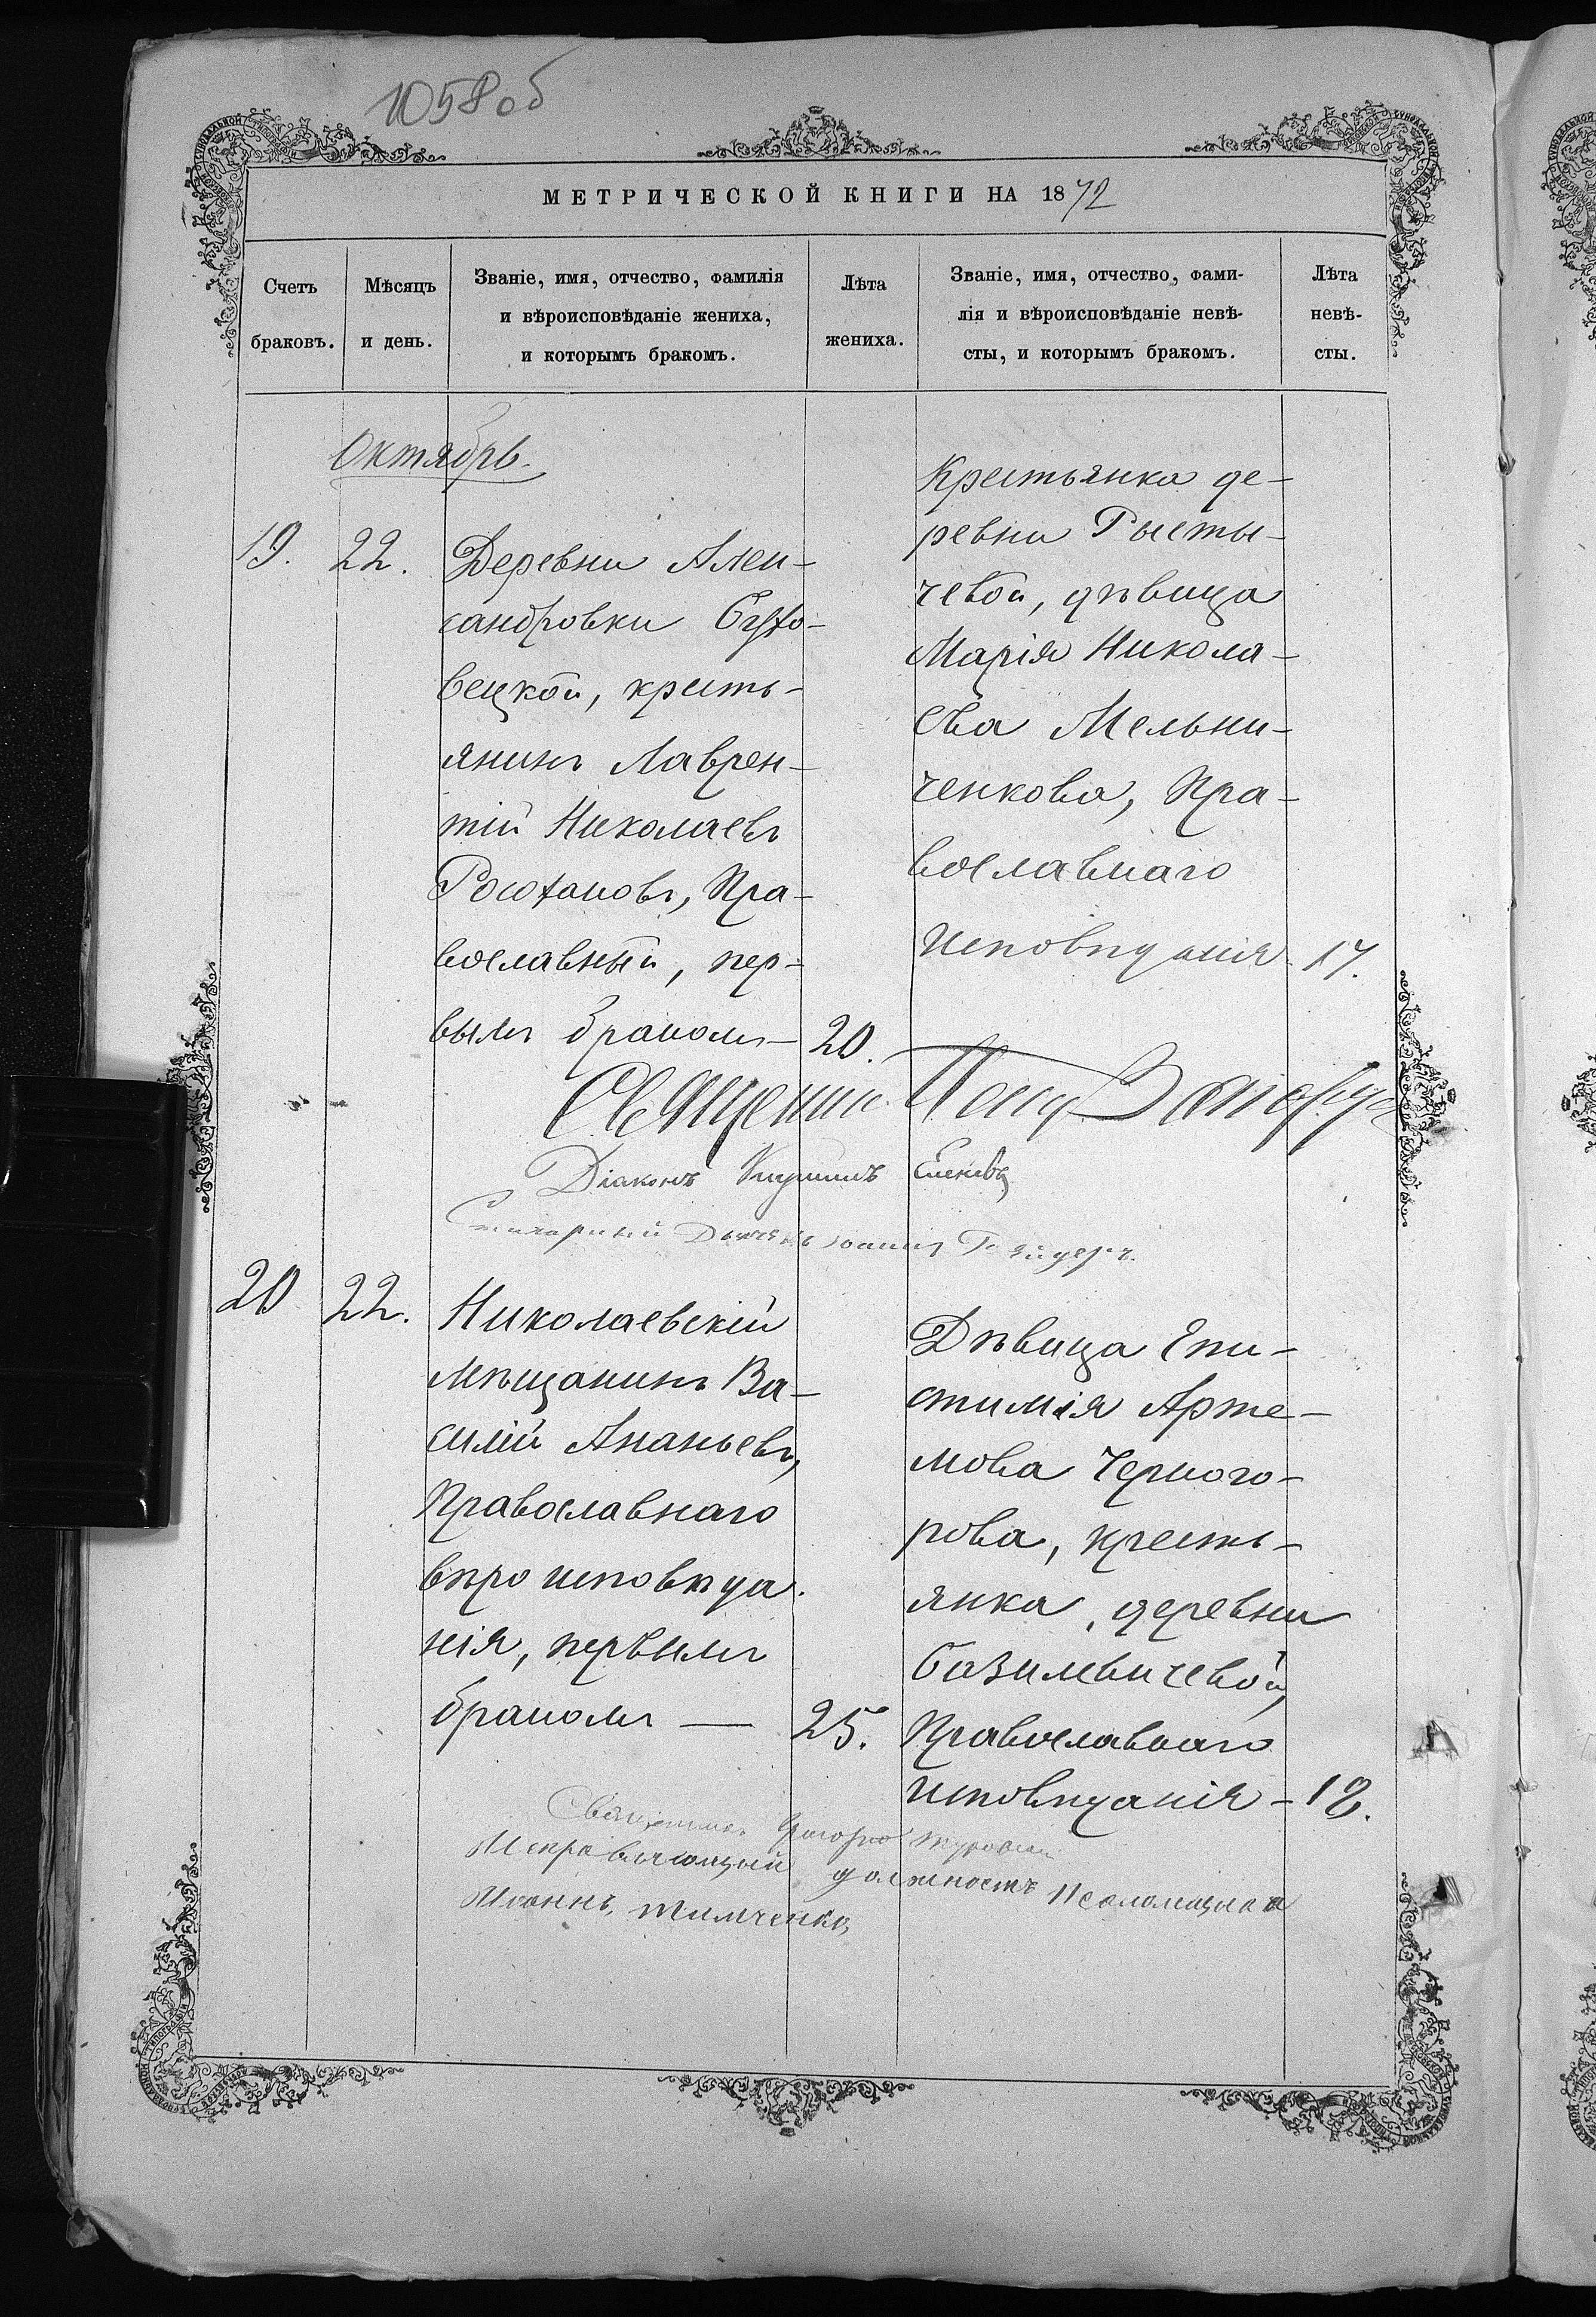 1058 об
МЕТРИЧЕСКОЙ КНИГИ НА 1872
Счетъ браковъ.
Мѣсяцъ и день.
Званіе, имя, отчество, фамилія
и вѣроисповѣданіе жениха,
и которымъ бракомъ.
Лѣта жениха.
Званіе, имя, отчество, фами-
лія и вѣроисповѣданіе невѣ-
сты, и которымъ бракомъ.
Лѣта невѣ-
сты.
Октябрь.
19. 22.
Деревни Алек-
сандровки
вецкой, кресть-
янинъ Лаврен-
тій Николаевъ
Пра-
вославный, пер-
вымъ бракомъ — 20.
Крестьянка де-
ревни
чевой, дѣвица
Марія Никола-
ева Мельни-
ченкова, Пра-
вославнаго
Исповѣданія 17.
Священник
Діаконъ Кириллъ
Стихарный Дьячекъ
20 22.
Николаевскій
мѣщанинъ Ва-
силій Ананьевъ,
Православнаго
вѣроисповѣда-
нія, первымъ
бракомъ — 25.
Дѣвица Епи-
стимія Арте-
мова Черного-
рова, кресть-
янка, деревни
Базилевичевой,
Православнаго
исповѣданія - 18.
Священникъ
Исправляющій должность Псаломщика
Иоаннъ Тимченко,